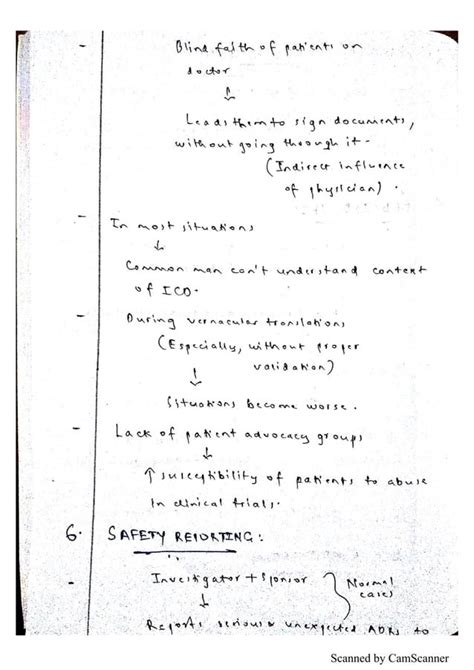 - Blind faith of patients on
doctor
↓
Leads them to sign documents,
without going through it.
(Indirect influence
of physician).
- In most situations
↓
Common man can't understand content
of ICD.
- During vernacular translations
(Especially, without proper
validation)
↓
Situations become worse.
- Lack of patient advocacy groups
↓
↑ susceptibility of patients to abuse
in clinical trials.
6. SAFETY REPORTING:
- Investigator + Sponsor } Normal
cases
↓
Reports serious & unexpected ADRs to
Scanned by CamScanner